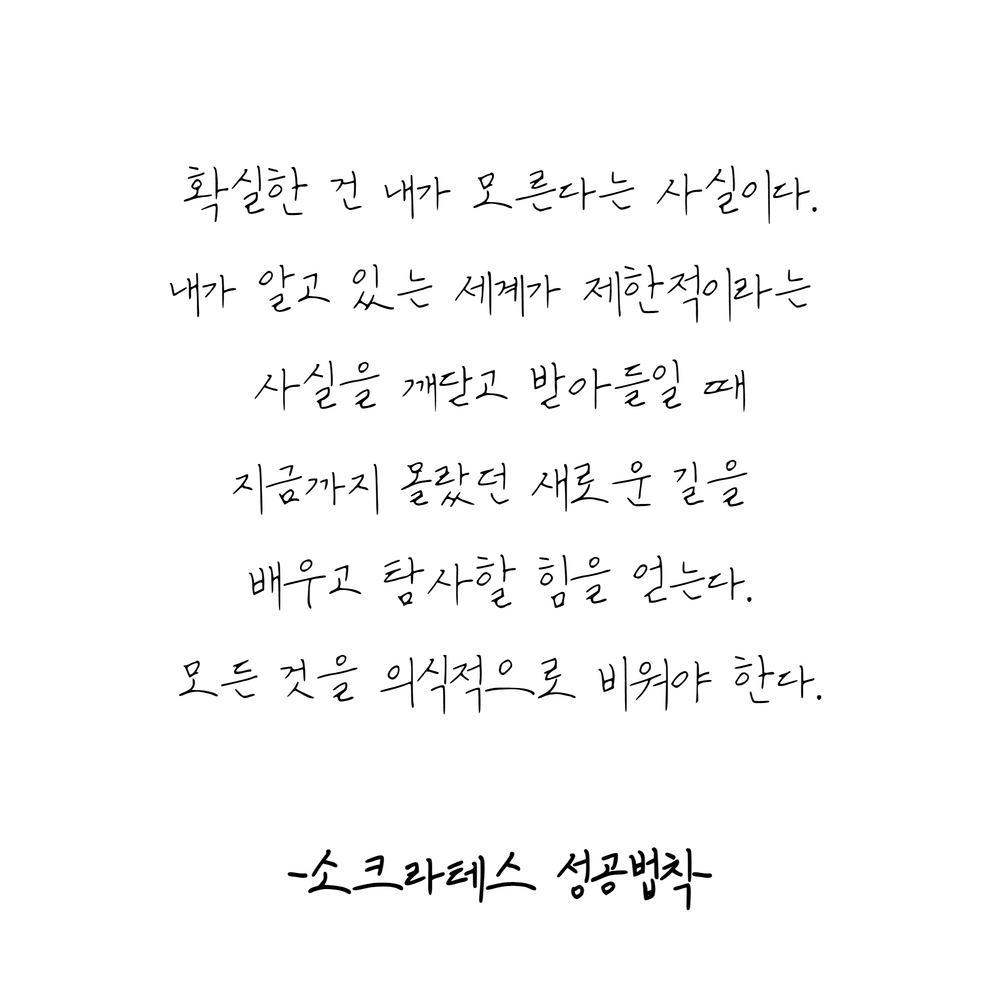 확실한 건 내가 모른다는 사실이다.
내가 알고 있는 세계가 제한적이라는
사실을 깨닫고 받아들일 때
지금까지 몰랐던 새로운 길을
배우고 탐사할 힘을 얻는다.
모든 것을 의식적으로 비워야 한다.
-소크라테스 성공법칙-